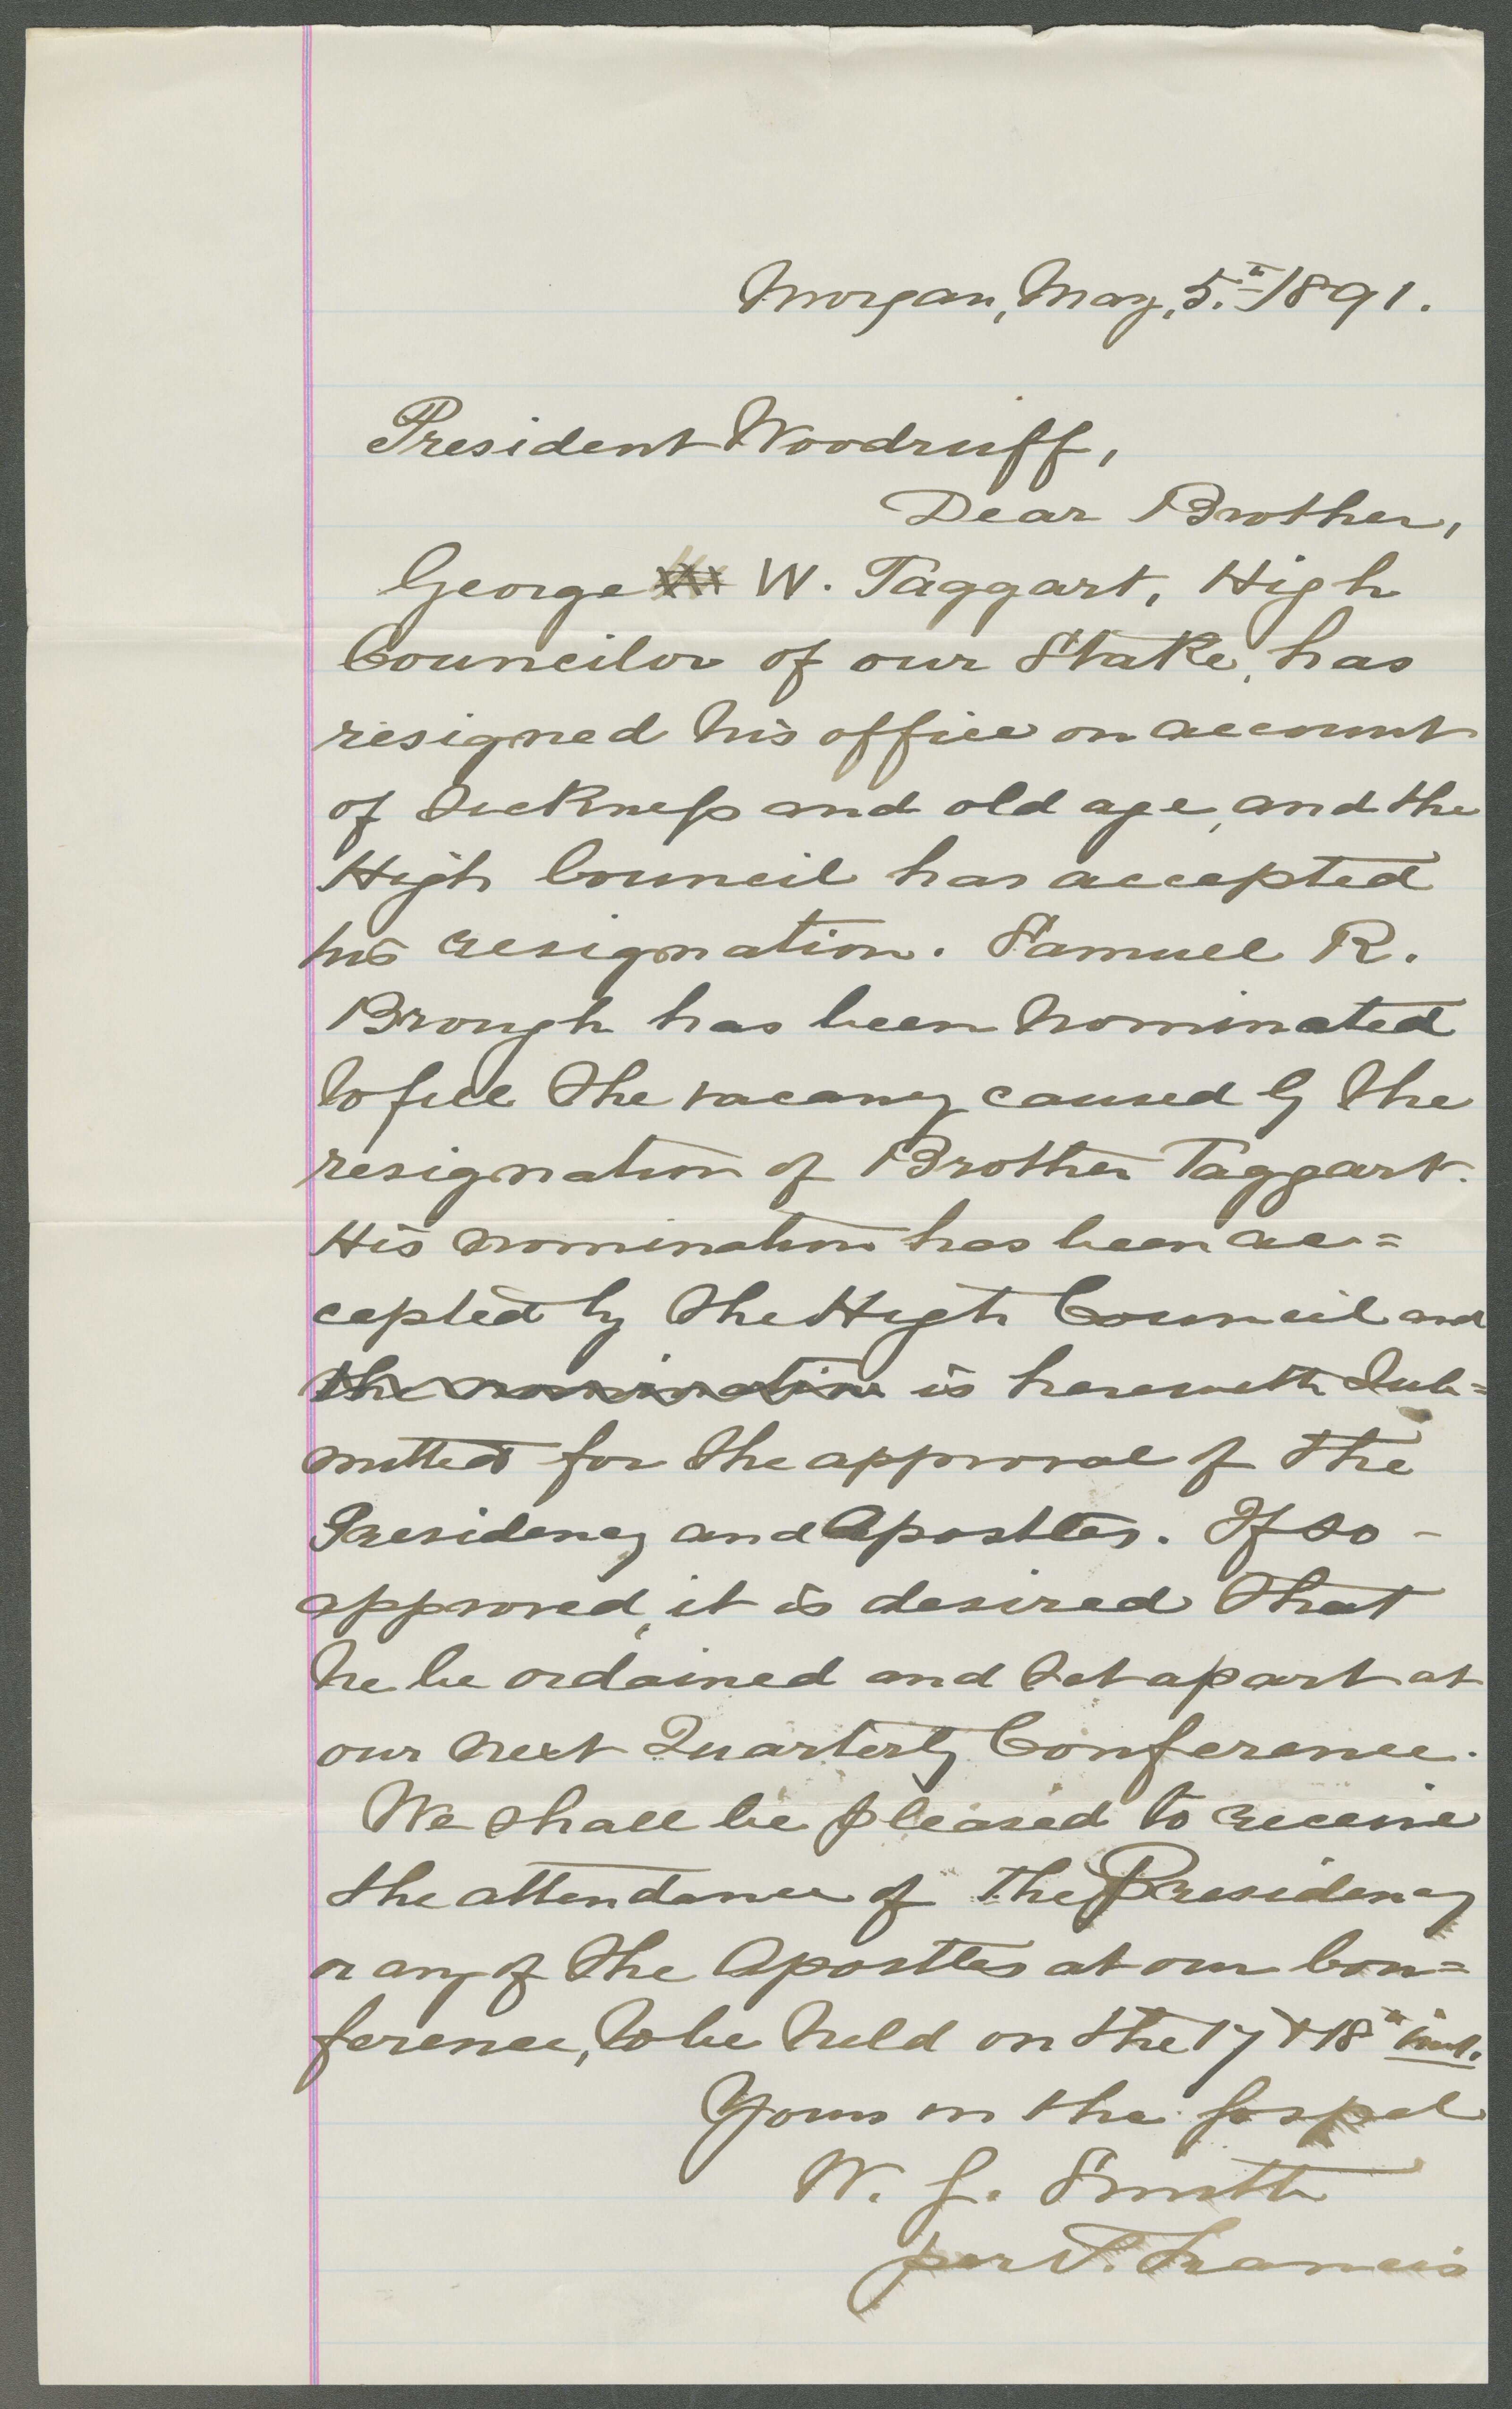 Morgan, May, 5.th 1891.
President Woodruff,
Dear Brother,
George W. Taggart, High
Councilor of our Stake, has
resigned his office on account
of Sickness and old age, and the
High Council has accepted
his resignation. Samuel R.
Brough has been nominated
to fill the vacancy caused by the
resignation of Brother Taggart.
His nomination has been ac=
cepted by the High Council and
the nomination is herewith Sub=
mitted for the approval of the
Presidency and Apostles. If so-
approved, it is desired that
he be ordained and Set apart at
our next Quarterly Conference.
We shall be pleased to receive
the attendance of the Presidency
or any of the Apostles at our Con=
ference, to be held on the 17 & 18th inst.
Yours in the Gospel
W. G. Smith
per S. Francis